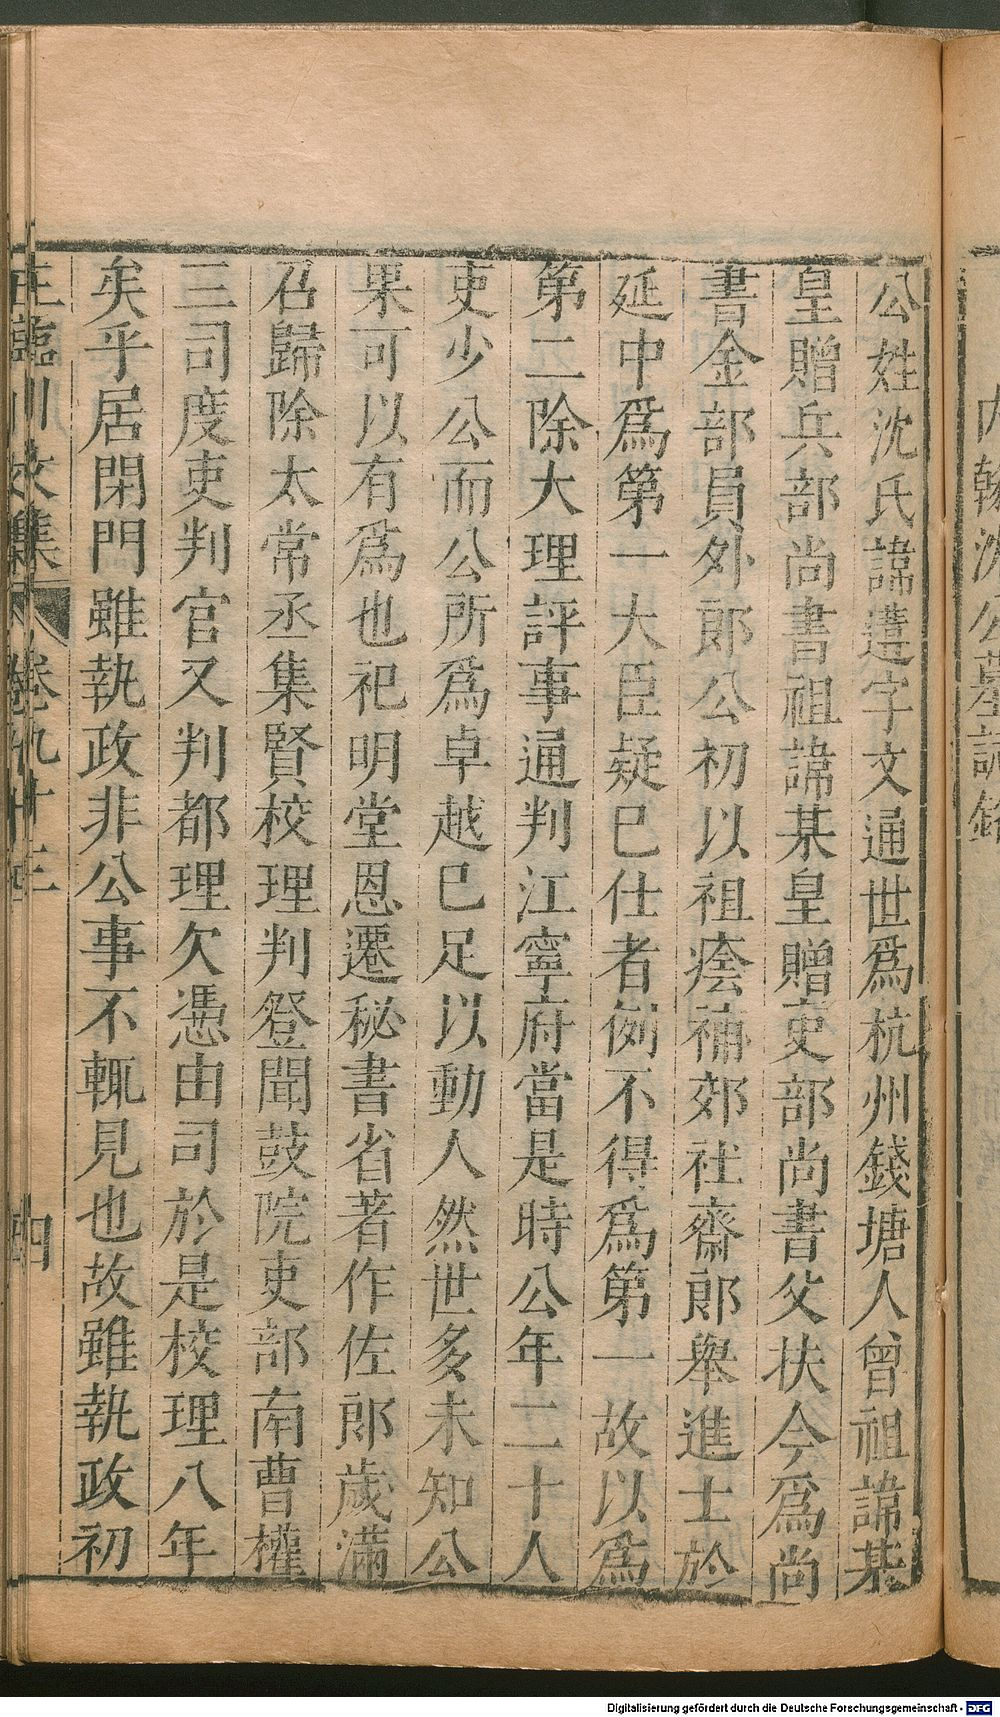 內翰沈公墓誌銘
公姓沈氏諱遘字文通世爲杭州錢塘人曾祖諱某
皇贈兵部尚書祖諱某皇贈吏部尚書父扶今爲尚
書金部員外郎公初以祖廕補郊社齋郎舉進士於
延中爲第一大臣疑巳仕者例不得爲第一故以爲
第二除大理評事通判江寧府當是時公年二十人
吏少公而公所爲卓越巳足以動人然世多未知公
果可以有爲也祀明堂恩遷秘書省著作佐郎歲滿
召歸除太常丞集賢校理判登聞鼓院吏部南曹權
三司度吏判官又判都理欠憑由司於是校理八年
矣乎居閑門雖執政非公事不輒見也故雖執政初
王臨川文集 卷九十三 四
Digitalisierung gefördert durch die Deutsche Forschungsgemeinschaft - DFG